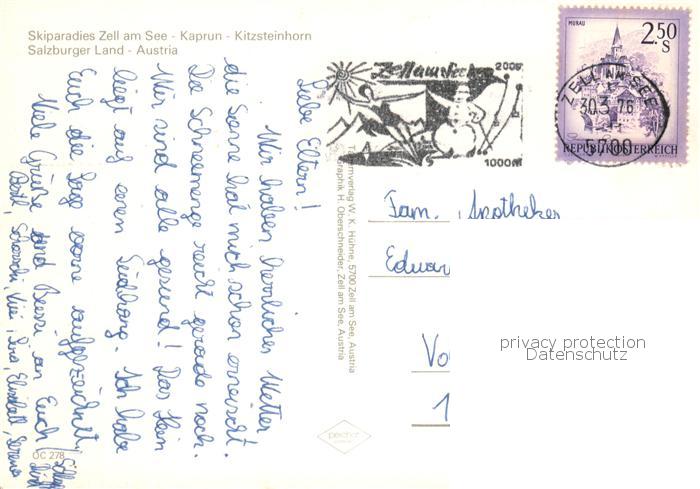 Skiparadies Zell am See - Kaprun - Kitzsteinhorn
Salzburger Land - Austria
Liebe Eltern!
Wir haben herrliches Wetter,
die Sonne hat mich schon erwischt.
Die Schneemenge reicht gerade noch.
Wir sind alle gesund! Das Heim
liegt auf einem Südhang. Ich habe
Euch die Lage vorne aufgezeichnet.
Viele Grüße und Bussi an Euch
OC 278
Zell am See
2000
1000m
MURAU
2.50 S
REPUBLIK ÖSTERREICH
ZELL AM SEE
30.3.76
5700
verlag W. K. Hühne, 5700 Zell am See, Austria
Graphik H. Oberschneider, Zell am See, Austria
Fam. Apotheker
Eduar
Vo
1
privacy protection
Datenschutz